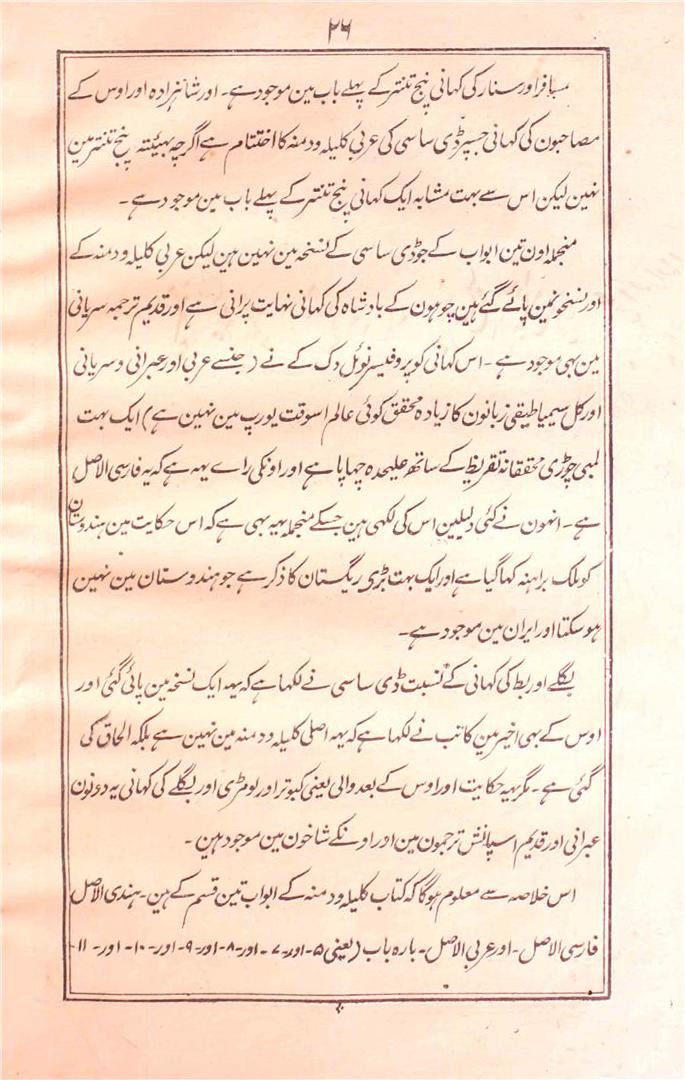 ۲۶
مسافر اور سنار کی کہانی پنج تنتر کے پہلے باب مین موجود ہے۔ اور شاہزادہ اور اوس کے
مصاحبون کی کہانی جسپر ڈی ساسی کی عربی کلیلہ و دمنہ کا اختتام ہے اگرچہ بہیئتہ پنج تنتر مین
نہین لیکن اس سے بہت مشابہ ایک کہانی پنج تنتر کے پہلے باب مین موجود ہے۔
منجملہ اون تین ابواب کے جو ڈی ساسی کے نسخہ مین نہین ہین لیکن عربی کلیلہ و دمنہ کے
اور نسخونمین پائے گئے ہین چوہون کے بادشاہ کی کہانی نہایت پرانی ہے اور قدیم ترجمہ سریانی
مین بہی موجود ہے۔ اس کہانی کو پروفیسر نوئل دک کے نے (جنسے عربی اور عبرانی و سریانی
اور کل سیمیاطیقی زبانون کا زیادہ محقق کوئی عالم اسوقت یورپ مین نہین ہے) ایک بہت
لمبی چوڑی محققانہ تقریظ کے ساتھ علیحدہ چہاپا ہے اور اونکی راے یہہ ہے کہ یہ فارسی الاصل
ہے۔ انہون نے کئی دلیلین اس کی لکہی ہین جسکے منجملہ یہہ بہی ہے کہ اس حکایت مین ہندوستان
کو ملک براہنہ کہا گیا ہے اور ایک بہت بڑی ریگستان کا ذکر ہے جو ہندوستان مین نہین
ہو سکتا اور ایران مین موجود ہے۔
بگلے اور بط کی کہانی کے نسبت ڈی ساسی نے لکہا ہے کہ یہہ ایک نسخہ مین پائی گئی اور
اوس کے بہی اخیر مین کاتب نے لکہا ہے کہ یہہ اصلی کلیلہ و دمنہ مین نہین ہے بلکہ الحاق کی
گئی ہے۔ مگر یہہ حکایت اور اوس کے بعد والی یعنی کبوتر اور لومڑی اور بگلے کی کہانی یہ دونون
عبرانی اور قدیم اسپانش ترجمون مین اور اونکے شاخون مین موجود ہین۔
اس خلاصہ سے معلوم ہوگا کہ کتاب کلیلہ و دمنہ کے ابواب تین قسم کے ہین۔ ہندی الاصل
فارسی الاصل۔ اور عربی الاصل۔ بارہ باب (یعنی ۵۔ اور۔ ۷۔ اور۔ ۸۔ اور۔ ۹۔ اور۔ ۱۰۔ اور۔ ۱۱۔